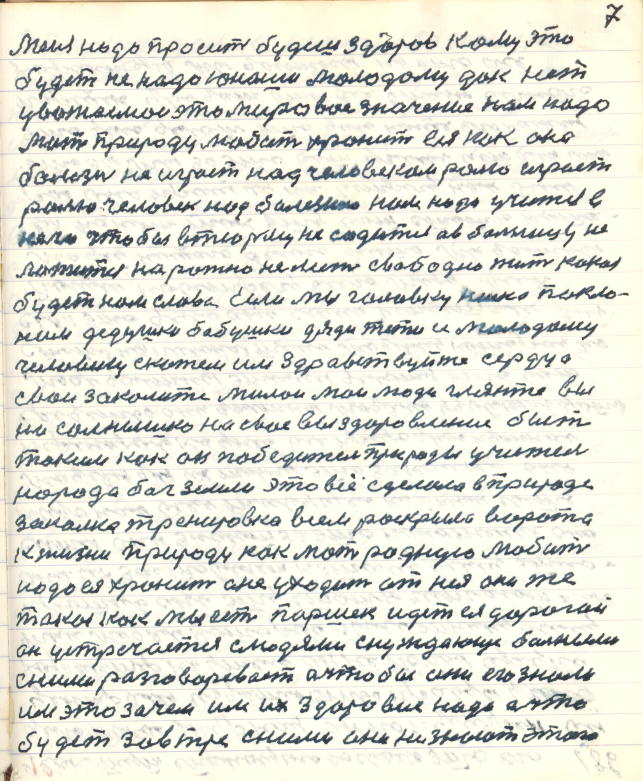 7
Меня надо просить будеш здоров кому это
будет не надо юнаши молодому док нет
уважаемое это мировое значение нам надо
мать природу любить хранить ея как она
болезн не играет над человеком рано играет
рано человек над болезню нам надо учится в
него чтобы в тюрму не садится а в больницу не
ложится на рожно не лезть свободно жить какая
будет нам слова Если мы головку низко покло-
ним дедушки бабушки дяди тети и молодому
человеку скажем им здравствуйте сердца
свои закалите милои мои люди гляньте вы
на солнышко на свое выздоровление быть
таким как он победителем природы учителем
народа бог земли это всё сделала в природе
закалка тренировка всем раскрыла ворота
к жизни природу как мать родную любить
надо ея хранить а не уходить от нея она же
такая как мы есть паршек идет ея дорогой
он устречается с людями с нуждающие больными
с ними разговаревает а чтобы они его знали
им это зачем им их здоровие надо а что
будет завтра с ними они не знают этого